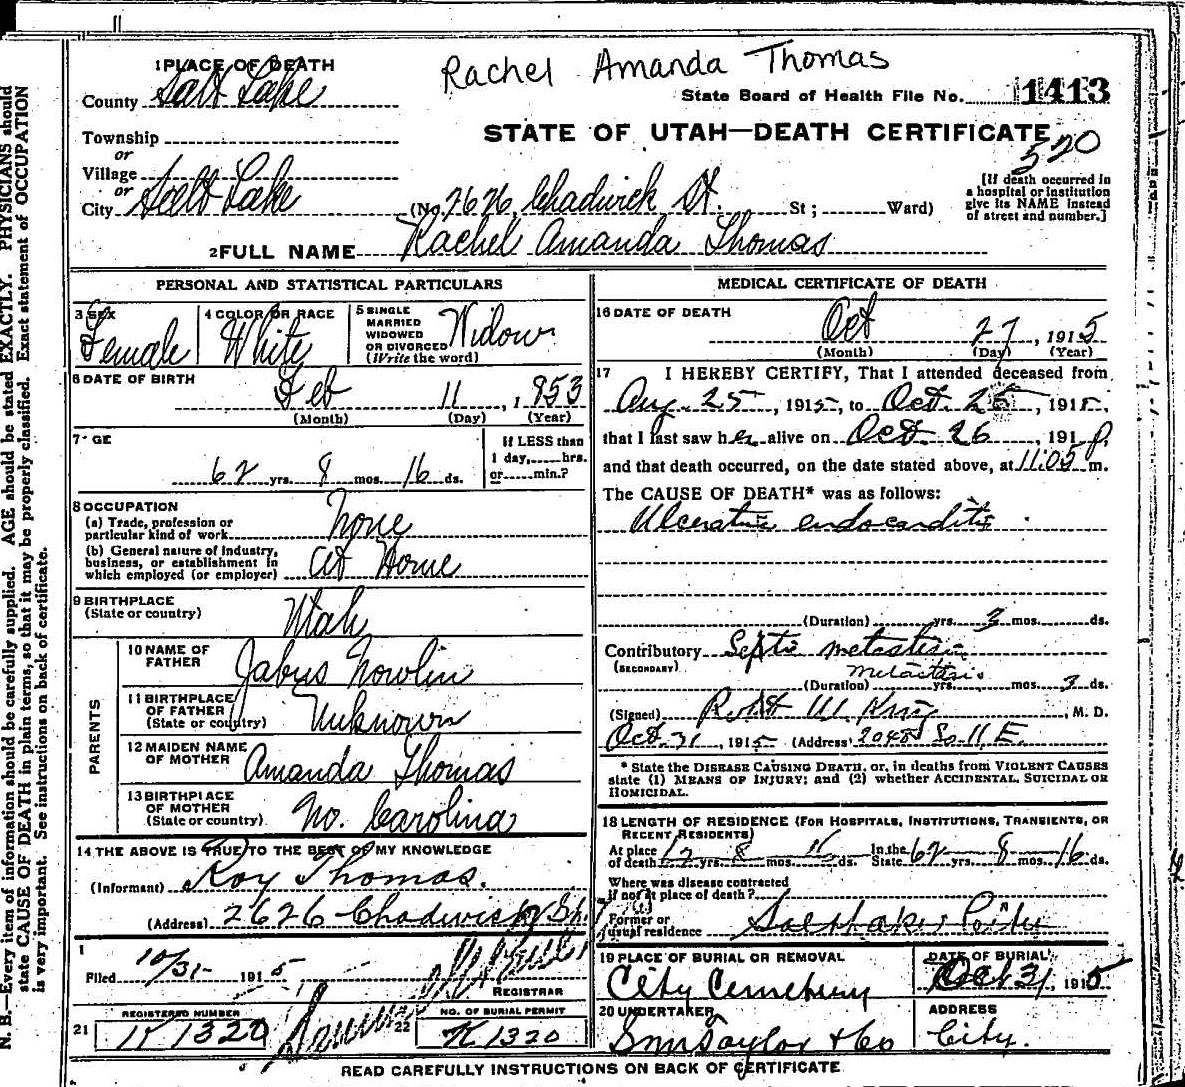 Rachel Amanda Thomas
1 PLACE OF DEATH
County Salt Lake
State Board of Health File No. 1413
Township
STATE OF UTAH—DEATH CERTIFICATE
or
520
Village
or
City Salt Lake
(No 2626 Chadwick St. St ; Ward)
[If death occurred in a hospital or institution give its NAME instead of street and number.]
2 FULL NAME Rachel Amanda Thomas
PERSONAL AND STATISTICAL PARTICULARS
3 SEX Female
4 COLOR OR RACE White
5 SINGLE MARRIED WIDOWED OR DIVORCED (Write the word) Widow
6 DATE OF BIRTH
Feb 11, 1853
(Month) (Day) (Year)
7 GE
62 yrs. 8 mos. 16 ds.
If LESS than 1 day, hrs. or min.?
8 OCCUPATION
(a) Trade, profession or particular kind of work None
(b) General nature of Industry, business, or establishment in which employed (or employer) at Home
9 BIRTHPLACE (State or country) Utah
PARENTS
10 NAME OF FATHER Jabus Nowlin
11 BIRTHPLACE OF FATHER (State or country) Unknown
12 MAIDEN NAME OF MOTHER Amanda Thomas
13 BIRTHPLACE OF MOTHER (State or country) No. Carolina
14 THE ABOVE IS TRUE TO THE BEST OF MY KNOWLEDGE
(Informant) Roy Thomas.
(Address) 2626 Chadwick St.
1
Filed 10/31- 1915
REGISTRAR
21 REGISTERED NUMBER K 1320
22 NO. OF BURIAL PERMIT K 1320
MEDICAL CERTIFICATE OF DEATH
16 DATE OF DEATH
Oct 27, 1915
(Month) (Day) (Year)
17 I HEREBY CERTIFY, That I attended deceased from
Aug. 25, 1915, to Oct. 25, 191
that I last saw her alive on Oct. 26, 191
and that death occurred, on the date stated above, at 11:05 P m.
The CAUSE OF DEATH* was as follows:
Ulcerative endocarditis
(Duration) yrs. 3 mos. ds.
Contributory Septic metastasis
(SECONDARY)
(Duration) yrs. mos. 3 ds.
(Signed) Robt W. King, M. D.
Oct. 31, 1915 (Address) 2048 So. 11 E.
* State the DISEASE CAUSING DEATH, or, in deaths from VIOLENT CAUSES
state (1) MEANS OF INJURY; and (2) whether ACCIDENTAL, SUICIDAL OR
HOMICIDAL.
18 LENGTH OF RESIDENCE (FOR HOSPITALS, INSTITUTIONS, TRANSIENTS, OR
RECENT RESIDENTS)
At place of death 12 yrs. 8 mos. 16 ds. In the State 62 yrs. 8 mos. 16 ds.
Where was disease contracted
if not at place of death?
Former or usual residence Salt Lake City
19 PLACE OF BURIAL OR REMOVAL
City Cemetery
DATE OF BURIAL
Oct 31, 1915
20 UNDERTAKER
S M Taylor & Co
ADDRESS
City.
READ CAREFULLY INSTRUCTIONS ON BACK OF CERTIFICATE
N. B.—Every item of information should be carefully supplied. AGE should be stated EXACTLY. PHYSICIANS should
state CAUSE OF DEATH in plain terms, so that it may be properly classified. Exact statement of OCCUPATION
is very important. See instructions on back of certificate.